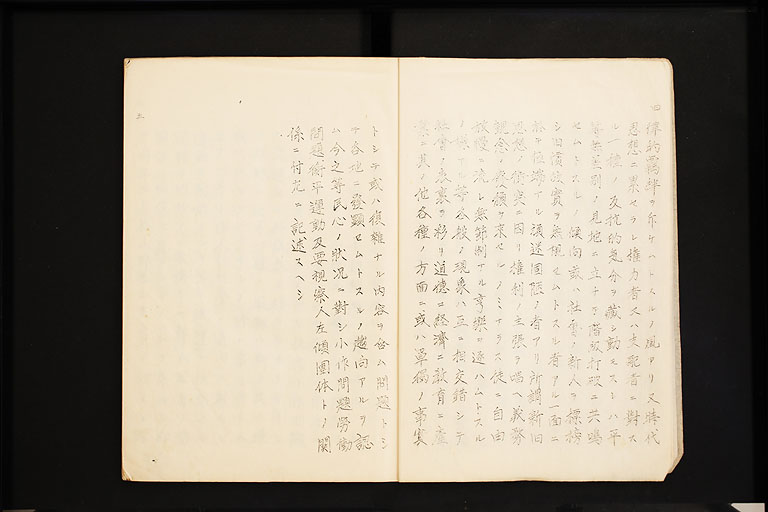 四律的羈絆ヲ斥ケハトスルノ風アリ又時代
思想ニ累セラレ権力者又ハ支配者ニ對ス
ル一種ノ反抗的気分ヲ蔵シ動モスレハ平
等無差別ノ見地ニ立チテ階級打破ニ共鳴
セムトスルノ傾向或ハ社會ノ新人ヲ標榜
シ旧慣故實ヲ無視セムトスル者アル一面ニ
於テ極端ナル頑迷固陋ノ者アリ所謂新旧
思想ノ衝突ニ因リ権利ノ主張ヲ唱ヘ義務
観念ノ廃頽ヲ来セルノミナラス徒ニ自由
放慢ニ流レ無節制ナル享樂ヲ逐ハムトスル
ノ様アル等各般ノ現象ハ互ニ相交錯シテ
社會ノ表裏ヲ彩リ道徳ニ経済ニ教育ニ産
業ニ其ノ他各種ノ方面ニ或ハ單獨ノ事実
トシテ或ハ複雑ナル内容ヲ含ム問題トシ
テ各地ニ發顕セムトスルノ趨向アルヲ認
ム今之等民心ノ状況ニ對シ小作問題勞働
問題衡平運動及要視察人左傾團体トノ関
係ニ付左ニ記述スヘシ